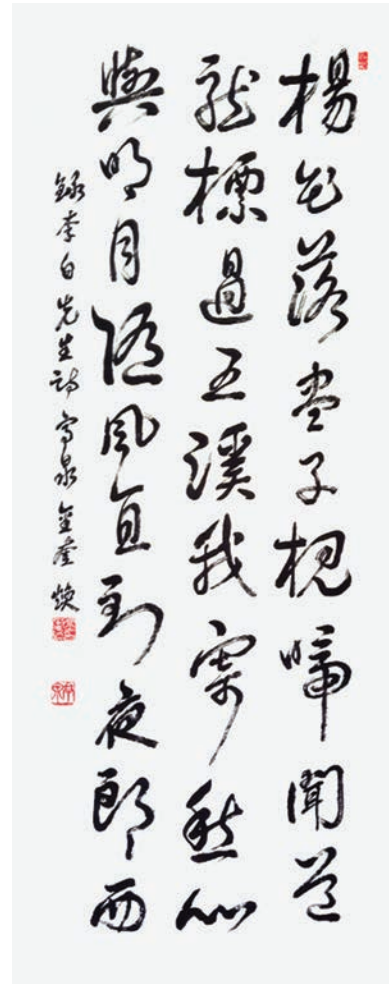 楊花落盡子規啼聞道
龍標過五溪我寄愁心
與明月隨風直到夜郎西
錄李白先生詩 泉 金奎煥